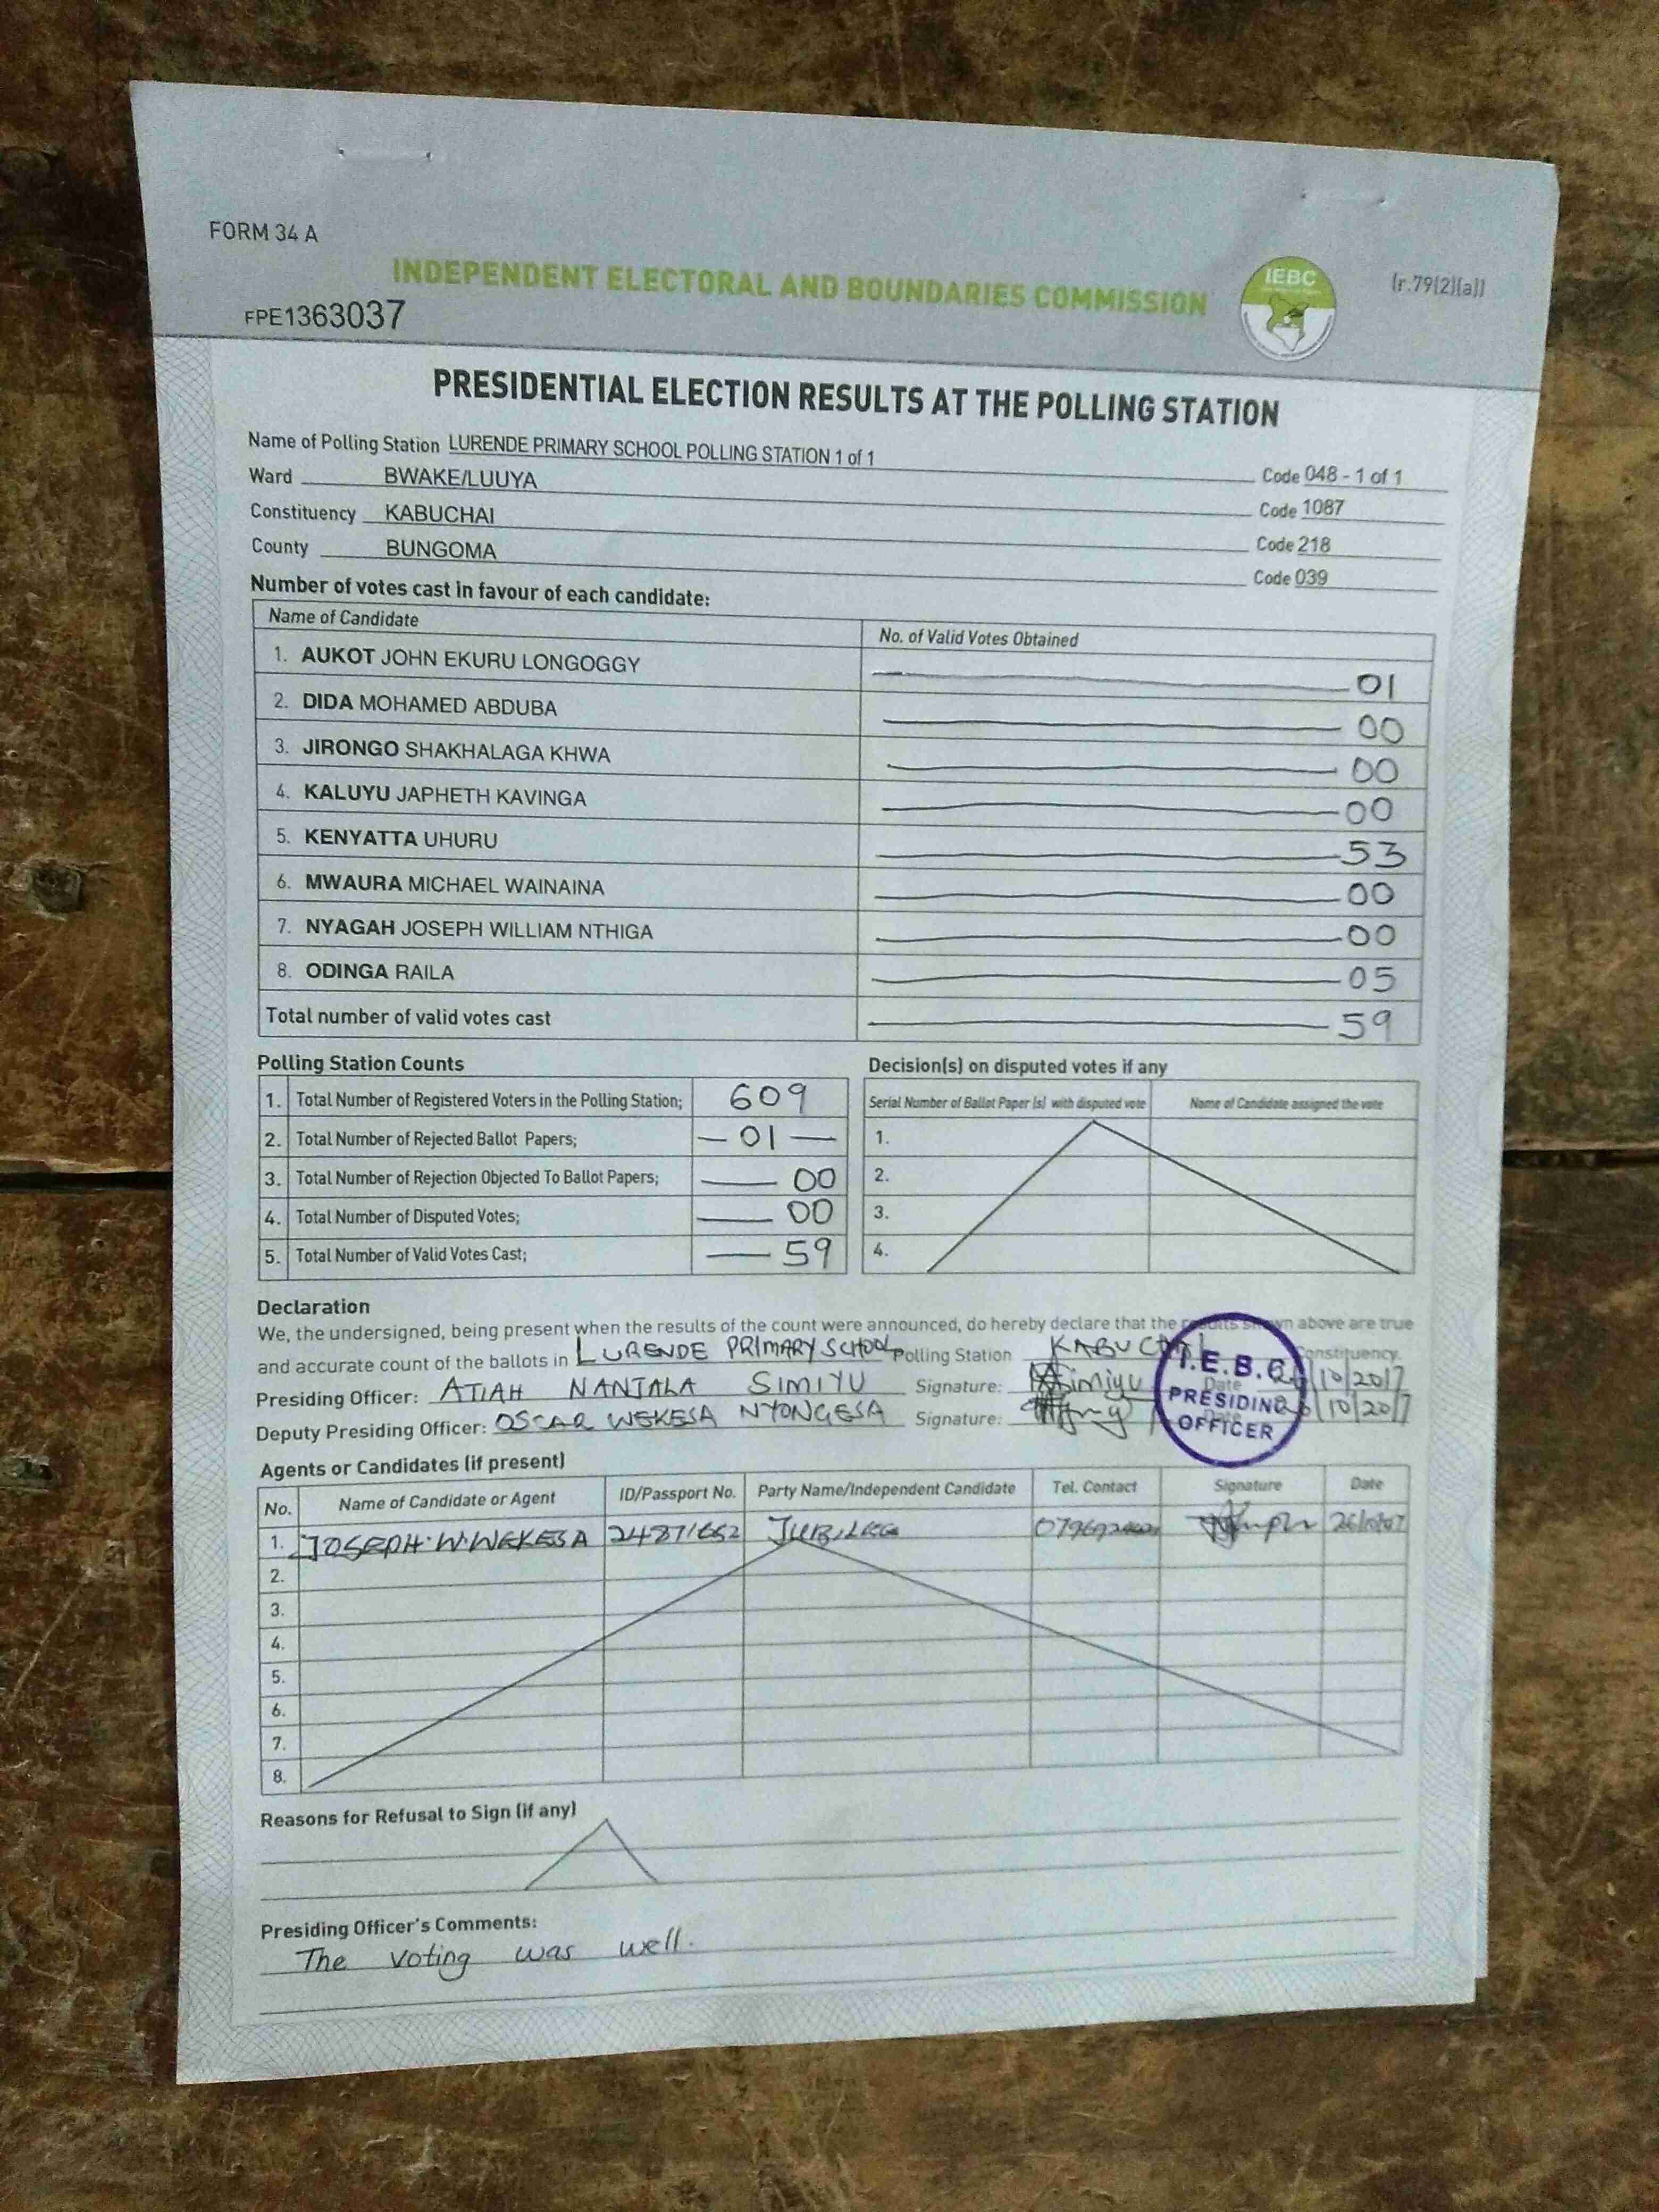 FORM 34 A
INDEPENDENT ELECTORAL AND BOUNDARIES COMMISSION
IEBC
(r.79(2)(a))
FPE1363037
PRESIDENTIAL ELECTION RESULTS AT THE POLLING STATION
Name of Polling Station LURENDE PRIMARY SCHOOL POLLING STATION 1 of 1 Code 048 - 1 of 1
Ward BWAKE/LUUYA Code 1087
Constituency KABUCHAI Code 218
County BUNGOMA Code 039
Number of votes cast in favour of each candidate:
Name of Candidate No. of Valid Votes Obtained
1. AUKOT JOHN EKURU LONGOGGY 01
2. DIDA MOHAMED ABDUBA 00
3. JIRONGO SHAKHALAGA KHWA 00
4. KALUYU JAPHETH KAVINGA 00
5. KENYATTA UHURU 53
6. MWAURA MICHAEL WAINAINA 00
7. NYAGAH JOSEPH WILLIAM NTHIGA 00
8. ODINGA RAILA 05
Total number of valid votes cast 59
Polling Station Counts
1. Total Number of Registered Voters in the Polling Station; 609
2. Total Number of Rejected Ballot Papers; 01
3. Total Number of Rejection Objected To Ballot Papers; 00
4. Total Number of Disputed Votes; 00
5. Total Number of Valid Votes Cast; 59
Decision(s) on disputed votes if any
Serial Number of Ballot Paper (s) with disputed vote Name of Candidate assigned the vote
1.
2.
3.
4.
Declaration
We, the undersigned, being present when the results of the count were announced, do hereby declare that the results shown above are true
and accurate count of the ballots in LURENDE PRIMARY SCHOOL Polling Station KABUCHAI Constituency.
Presiding Officer: ATIAH NANJALA SIMIYU Signature: Simiyu Date 26/10/2017
Deputy Presiding Officer: OSCAR WEKESA NYONGESA Signature: Date 26/10/2017
I.E.B.C
PRESIDING
OFFICER
Agents or Candidates (if present)
No. Name of Candidate or Agent ID/Passport No. Party Name/Independent Candidate Tel. Contact Signature Date
1. JOSEPH.W.WEKESA 24871652 JUBILEE
2.
3.
4.
5.
6.
7.
8.
Reasons for Refusal to Sign (if any)
Presiding Officer's Comments:
The voting was well.